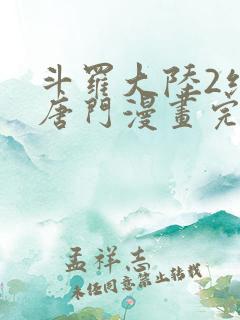 斗羅大陸2
唐門漫畫完
孟祥志
未经同意禁止转载